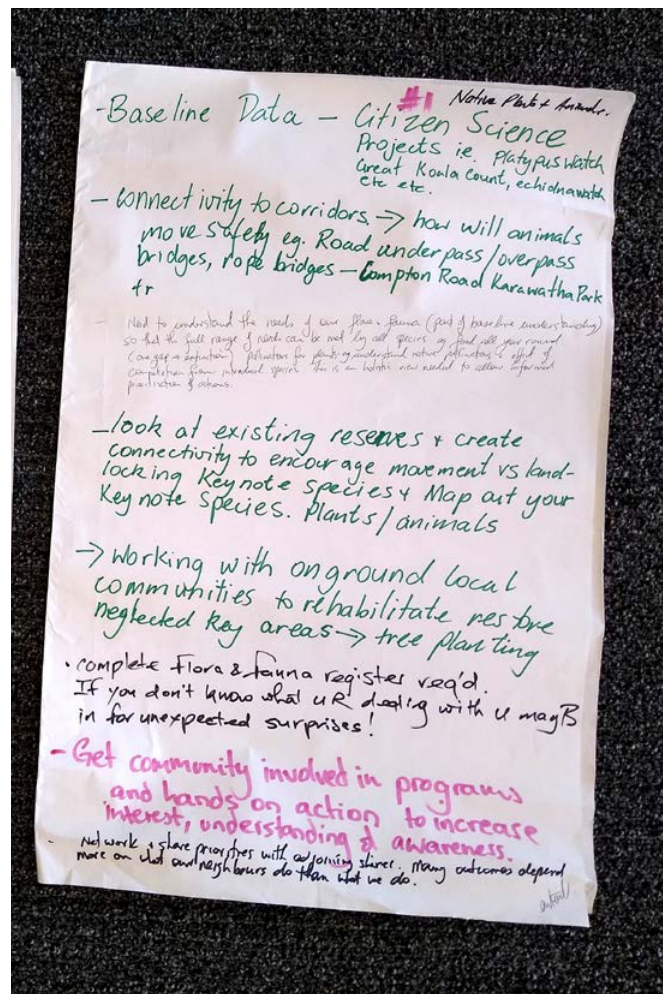 #1 Native Plants + Animals.
- Baseline Data - Citizen Science
Projects ie. Platypus Watch
Great Koala Count, echidna watch
etc etc.
- Connectivity to corridors → how will animals
move safely eg. Road underpass/overpass
bridges, rope bridges - Compton Road Karawatha Park
- Need to understand the needs of our flora + fauna (part of baseline understanding)
so that the full range of needs can be met by all species eg food all year round
(one gap = extinction) pollination for plants eg understand native pollinators & effect of
competition from individual species this is an holistic view needed to allow informed
prioritisation of actions.
- look at existing reserves + create
connectivity to encourage movement vs land-
locking Keynote Species + Map out your
Keynote Species. Plants/animals
→ working with onground local
communities to rehabilitate restore
neglected key areas → tree planting
• complete Flora & Fauna register req'd.
If you don't know what u R dealing with u may B
in for unexpected surprises!
- Get community involved in programs
and hands on action to increase
interest, understanding & awareness.
- Network + share priorities with adjoining shires. Many outcomes depend
more on what our neighbours do than what we do.